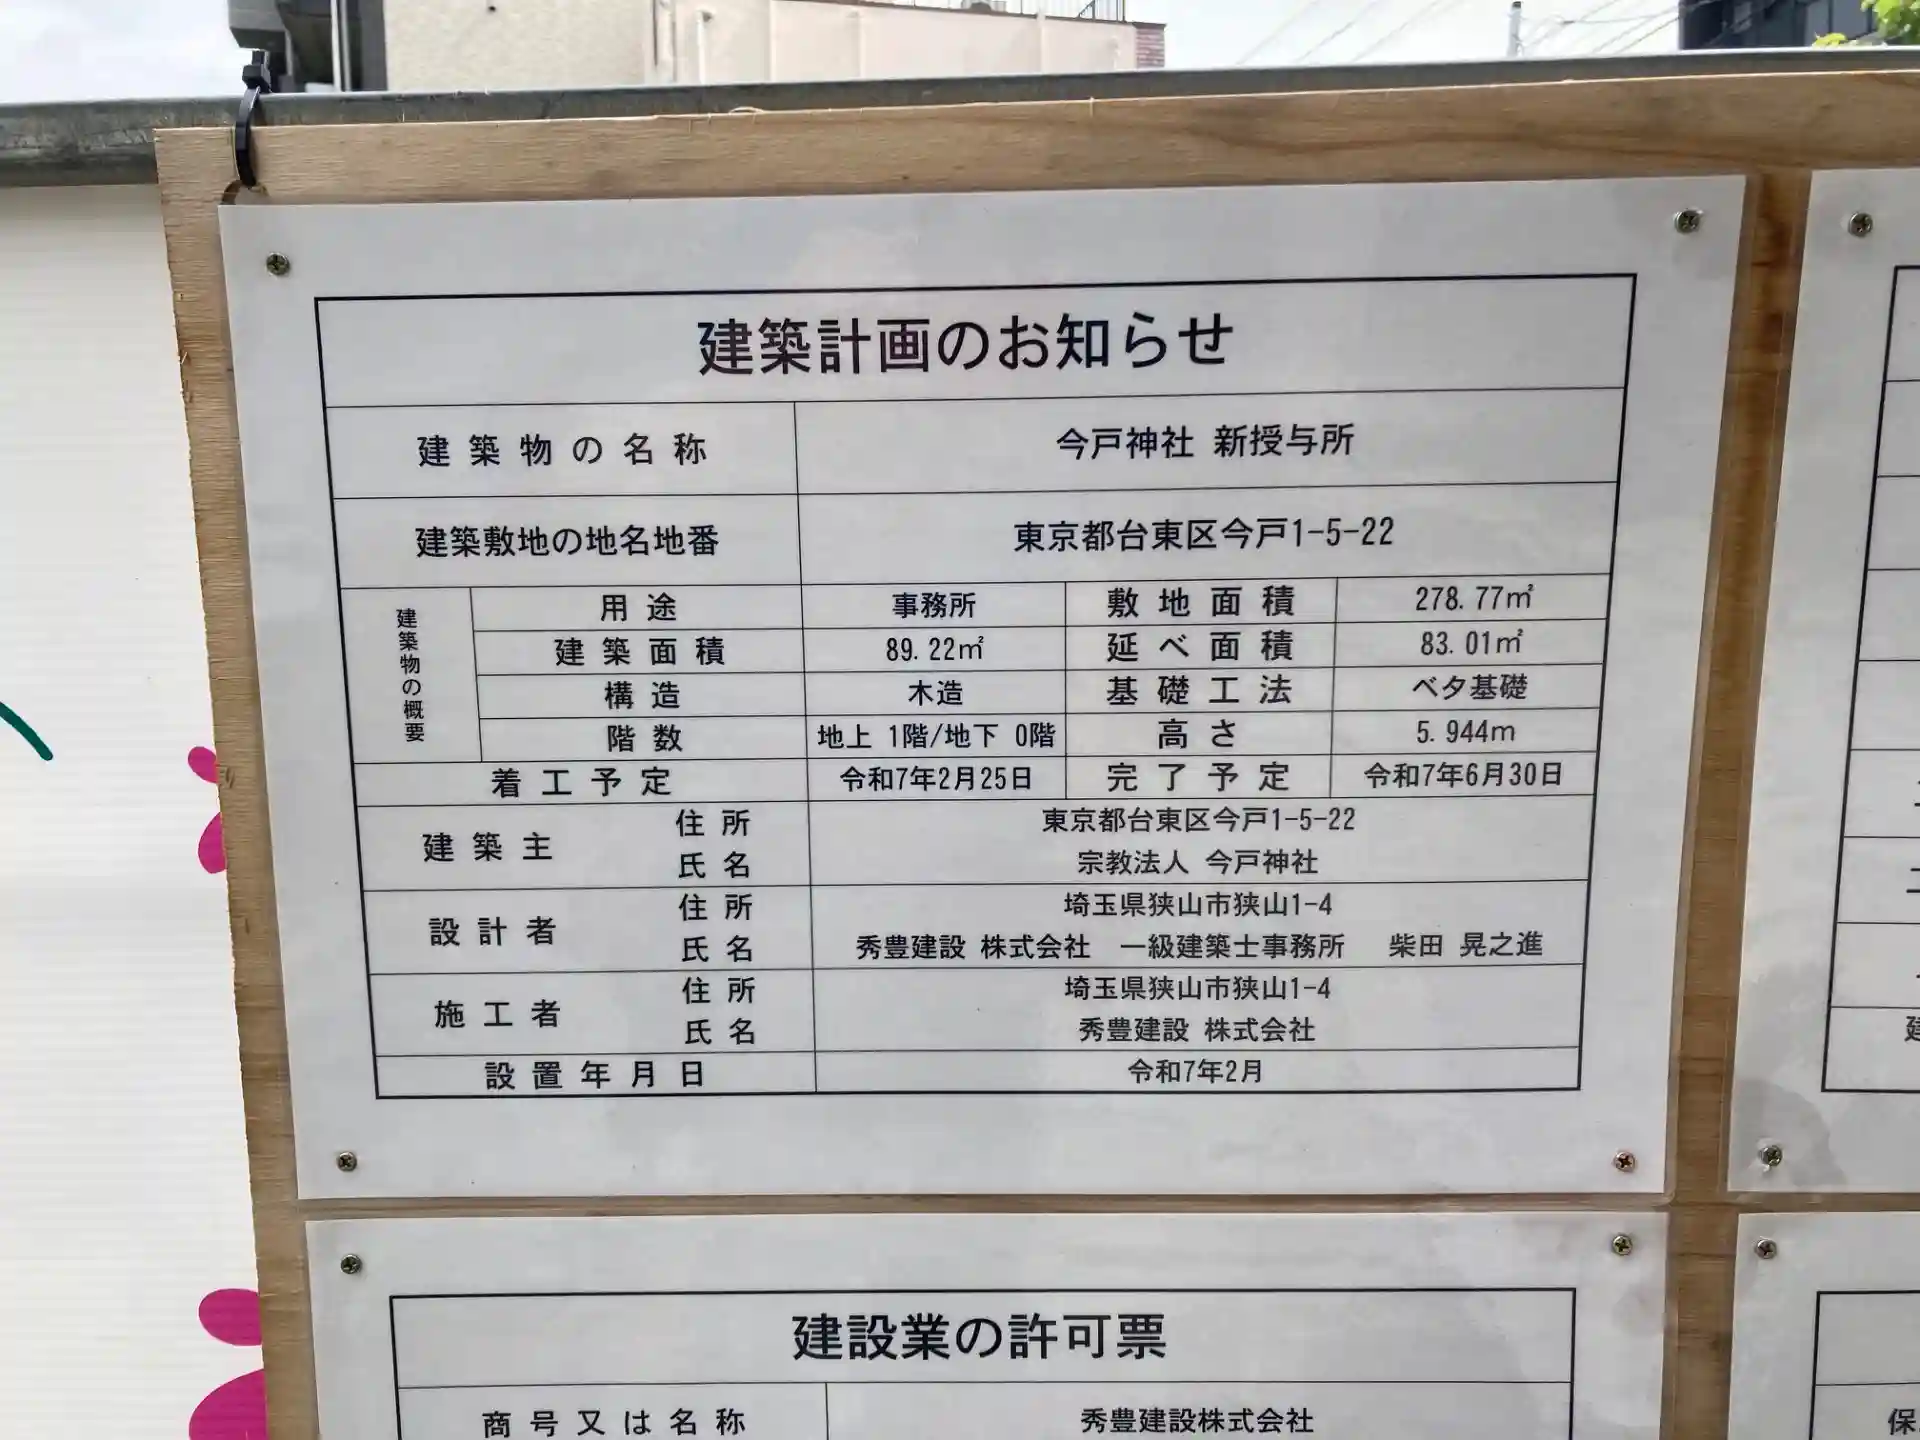 建築計画のお知らせ
建築物の名称 今戸神社 新授与所
建築敷地の地名地番 東京都台東区今戸1-5-22
建築物の概要
用途 事務所 敷地面積 278.77㎡
建築面積 89.22㎡ 延べ面積 83.01㎡
構造 木造 基礎工法 ベタ基礎
階数 地上 1階/地下 0階 高さ 5.944m
着工予定 令和7年2月25日 完了予定 令和7年6月30日
建築主 住所 東京都台東区今戸1-5-22
氏名 宗教法人 今戸神社
設計者 住所 埼玉県狭山市狭山1-4
氏名 秀豊建設 株式会社 一級建築士事務所 柴田 晃之進
施工者 住所 埼玉県狭山市狭山1-4
氏名 秀豊建設 株式会社
設置年月日 令和7年2月
建設業の許可票
商号又は名称 秀豊建設株式会社
保